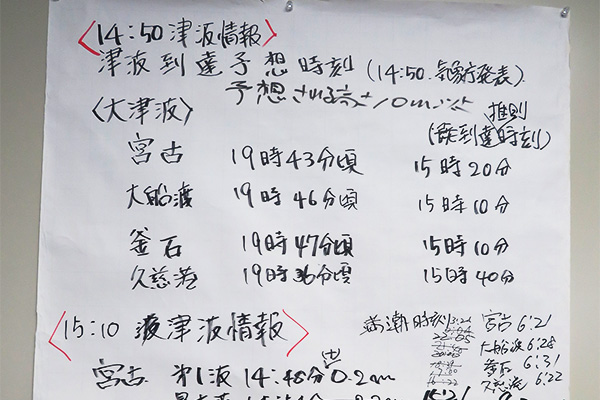 〈14:50津波情報〉
津波到達予想時刻(14:50.気象庁発表)
予想される高さ10m以上
〈大津波〉
推測
(最到達時刻)
宮古 19時43分頃 15時20分
大船渡 19時46分頃 15時10分
釜石 19時47分頃 15時10分
久慈港 19時36分頃 15時40分
〈15:10 津波情報〉
満潮時刻
宮古 6:21
大船渡 6:28
釜石 6:31
久慈港 6:22
宮古 第1波 14:48分 0.2m